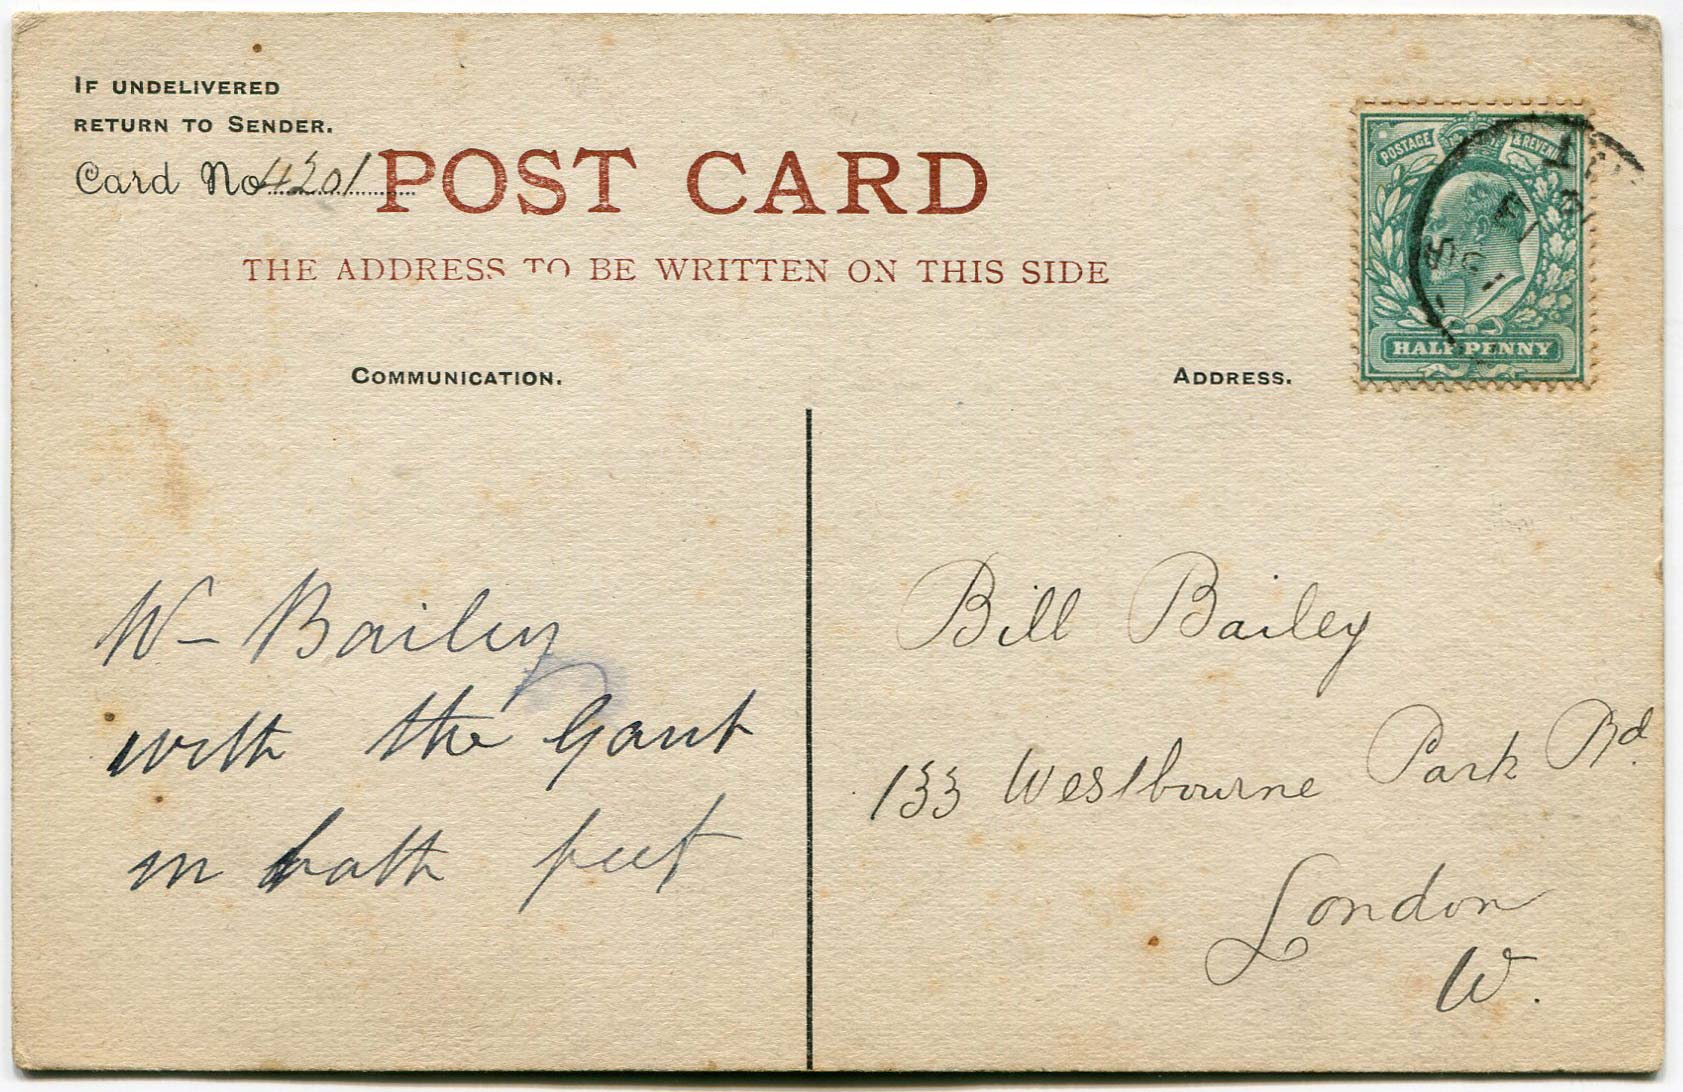 IF UNDELIVERED
RETURN TO SENDER.
Card No 4301
POST CARD
THE ADDRESS TO BE WRITTEN ON THIS SIDE
COMMUNICATION.
ADDRESS.
POSTAGE & REVENUE
HALFPENNY
W– Bailey
with the Gout
in both feet
Bill Bailey
133 Westbourne Park Rd.
London
W.